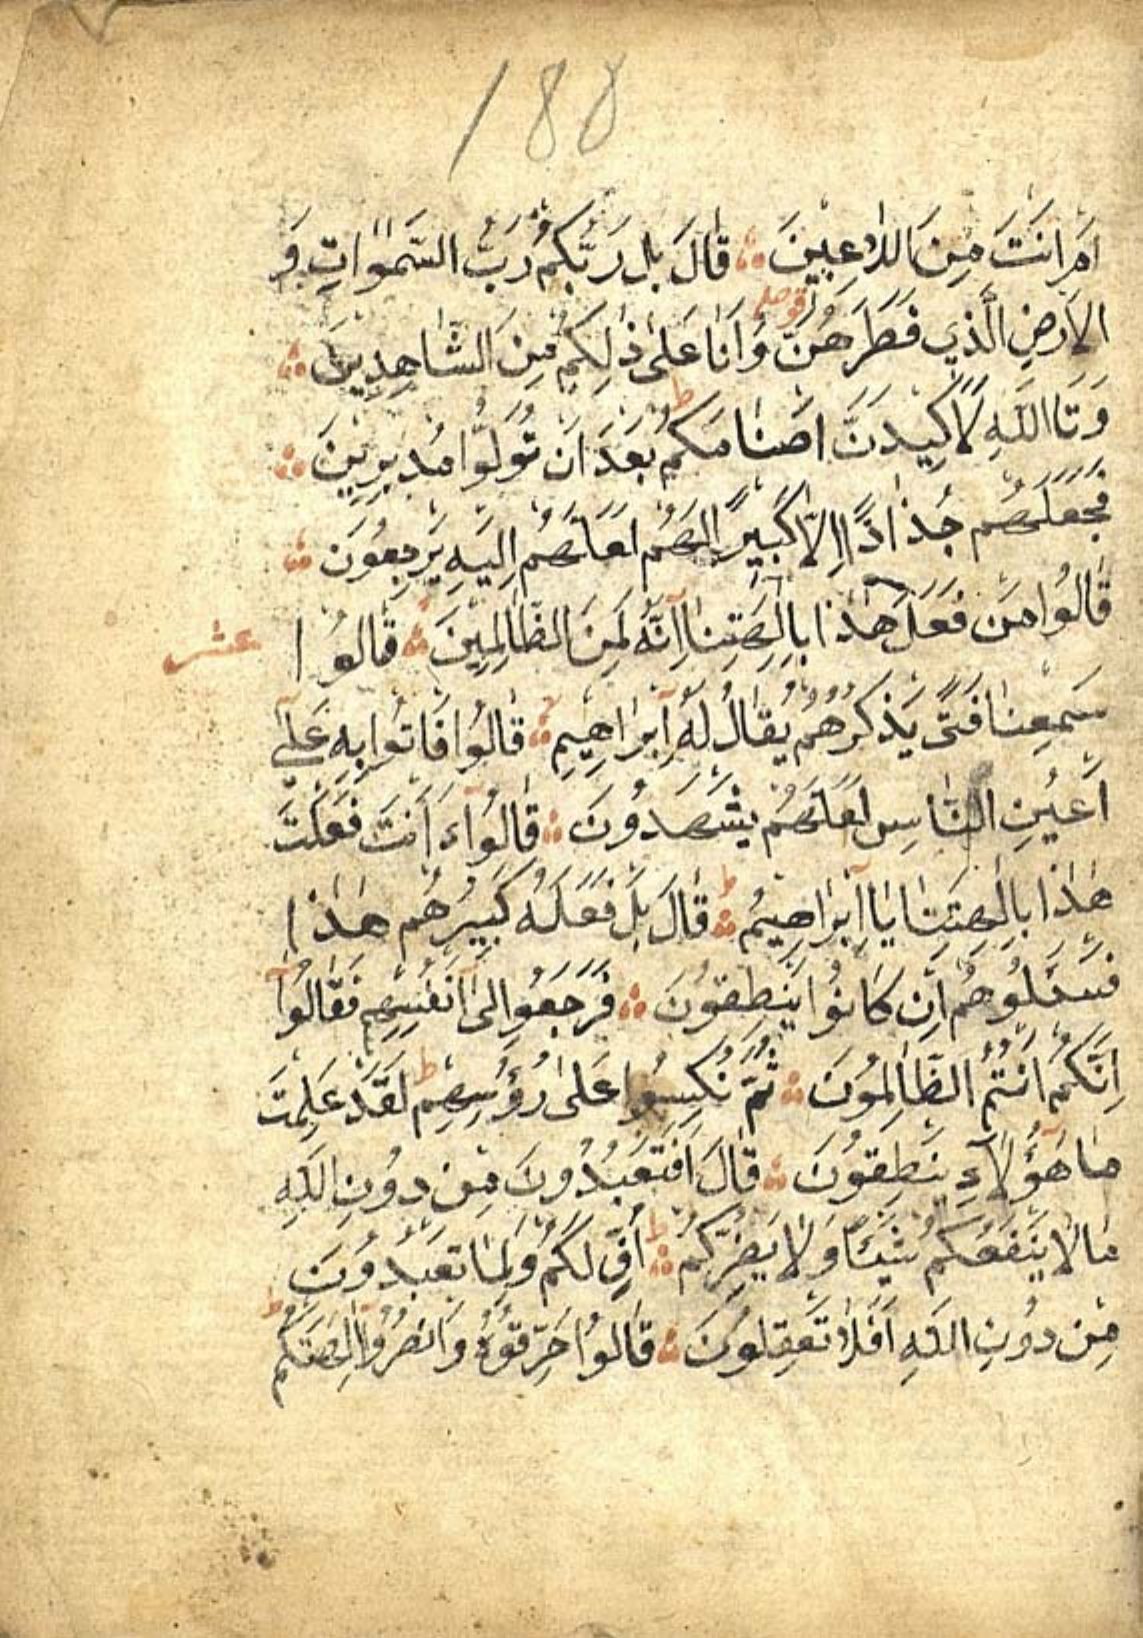 188
اَمْ اَنْتَ مِنَ اللَّاعِبِينَ ۞ قَالَ بَلْ رَبُّكُمْ رَبُّ السَّمٰوَاتِ وَ
الْاَرْضِ الَّذِي فَطَرَهُنَّ وَاَنَا عَلٰى ذٰلِكُمْ مِنَ الشَّاهِدِينَ ۞
وَتَااللّٰهِ لَاَكِيدَنَّ اَصْنَامَكُمْ بَعْدَ اَنْ تُوَلُّوا مُدْبِرِينَ ۞
فَجَعَلَهُمْ جُذَاذًا اِلَّا كَبِيرًا لَهُمْ لَعَلَّهُمْ اِلَيْهِ يَرْجِعُونَ ۞
قَالُوا مَنْ فَعَلَ هٰذَا بِاٰلِهَتِنَا اِنَّهُ لَمِنَ الظَّالِمِينَ ۞ قَالُوا
عشر
سَمِعْنَا فَتًى يَذْكُرُهُمْ يُقَالُ لَهُ اِبْرَاهِيمُ ۞ قَالُوا فَاْتُوا بِهِ عَلٰى
اَعْيُنِ النَّاسِ لَعَلَّهُمْ يَشْهَدُونَ ۞ قَالُوا ءَاَنْتَ فَعَلْتَ
هٰذَا بِاٰلِهَتِنَا يَا اِبْرَاهِيمُ ۞ قَالَ بَلْ فَعَلَهُ كَبِيرُهُمْ هٰذَا
فَسْـَٔلُوهُمْ اِنْ كَانُوا يَنْطِقُونَ ۞ فَرَجَعُوا اِلٰى اَنْفُسِهِمْ فَقَالُوا
اِنَّكُمْ اَنْتُمُ الظَّالِمُونَ ۞ ثُمَّ نُكِسُوا عَلٰى رُؤُسِهِمْ ط لَقَدْ عَلِمْتَ
مَا هٰؤُلَاءِ يَنْطِقُونَ ۞ قَالَ اَفَتَعْبُدُونَ مِنْ دُونِ اللّٰهِ
مَا لَا يَنْفَعُكُمْ شَيْئًا وَلَا يَضُرُّكُمْ ۞ اُفٍّ لَكُمْ وَلِمَا تَعْبُدُونَ
مِنْ دُونِ اللّٰهِ اَفَلَا تَعْقِلُونَ ۞ قَالُوا حَرِّقُوهُ وَانْصُرُوا اٰلِهَتَكُمْ